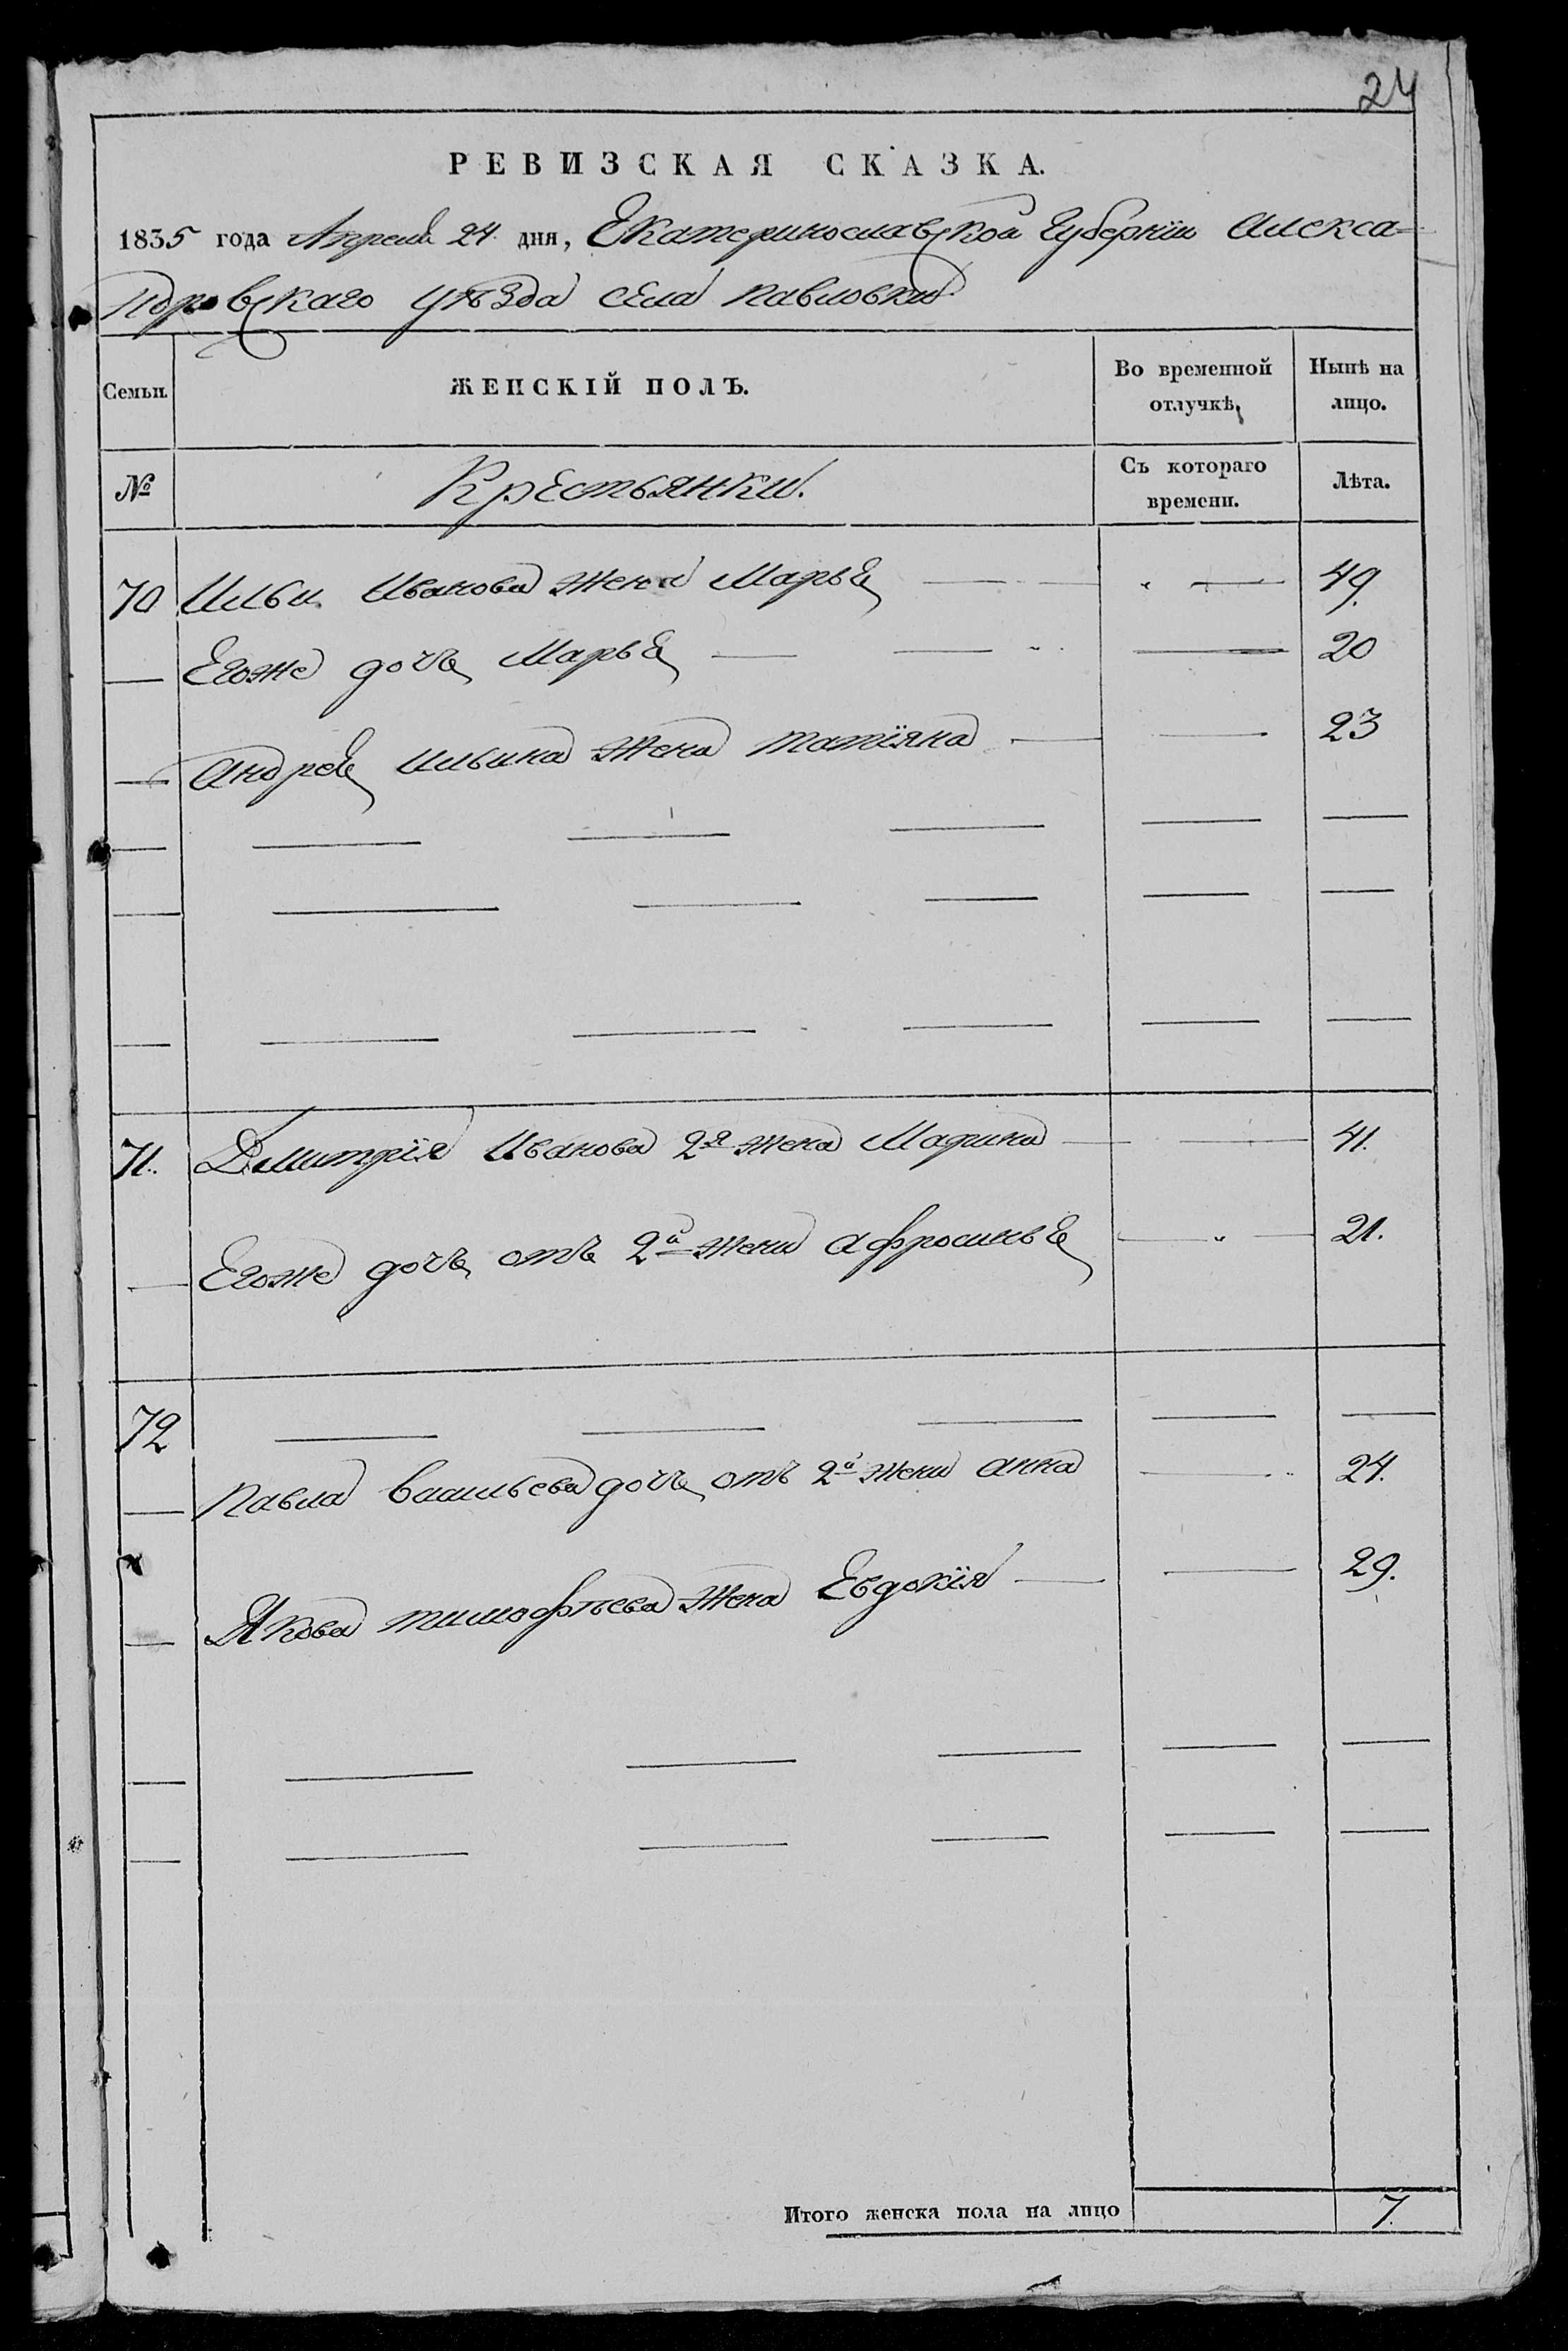 24
РЕВИЗСКАЯ СКАЗКА.
1835 года Апреля 24 дня, Екатеринославской Губернїи Алекса=
ндровскаго уѣзда села Павловки
Семьи. ЖЕНСКІЙ ПОЛЪ. Во временной отлучкѣ, Нынѣ на лицо.
№ Крестьянки. Съ котораго времени. Лѣта.
70 Ильи Иванова жена Марья — — " — 49.
— Егоже дочь Марья — — — 20
— Андрея Ильина жена татїяна — — 23
— — — — — —
— — — — — —
— — — — — —
71. Дмитрїя Иванова 2я жена Марина — — 41.
— Егоже дочь отъ 2й жены афросинья — " — 21.
72 — — — — —
— Павла васильева дочь отъ 2й жены анна — 24.
— Якова тимофѣева жена Евдокїя — — 29.
— — — — — —
— — — — — —
Итого женска пола на лицо 7.